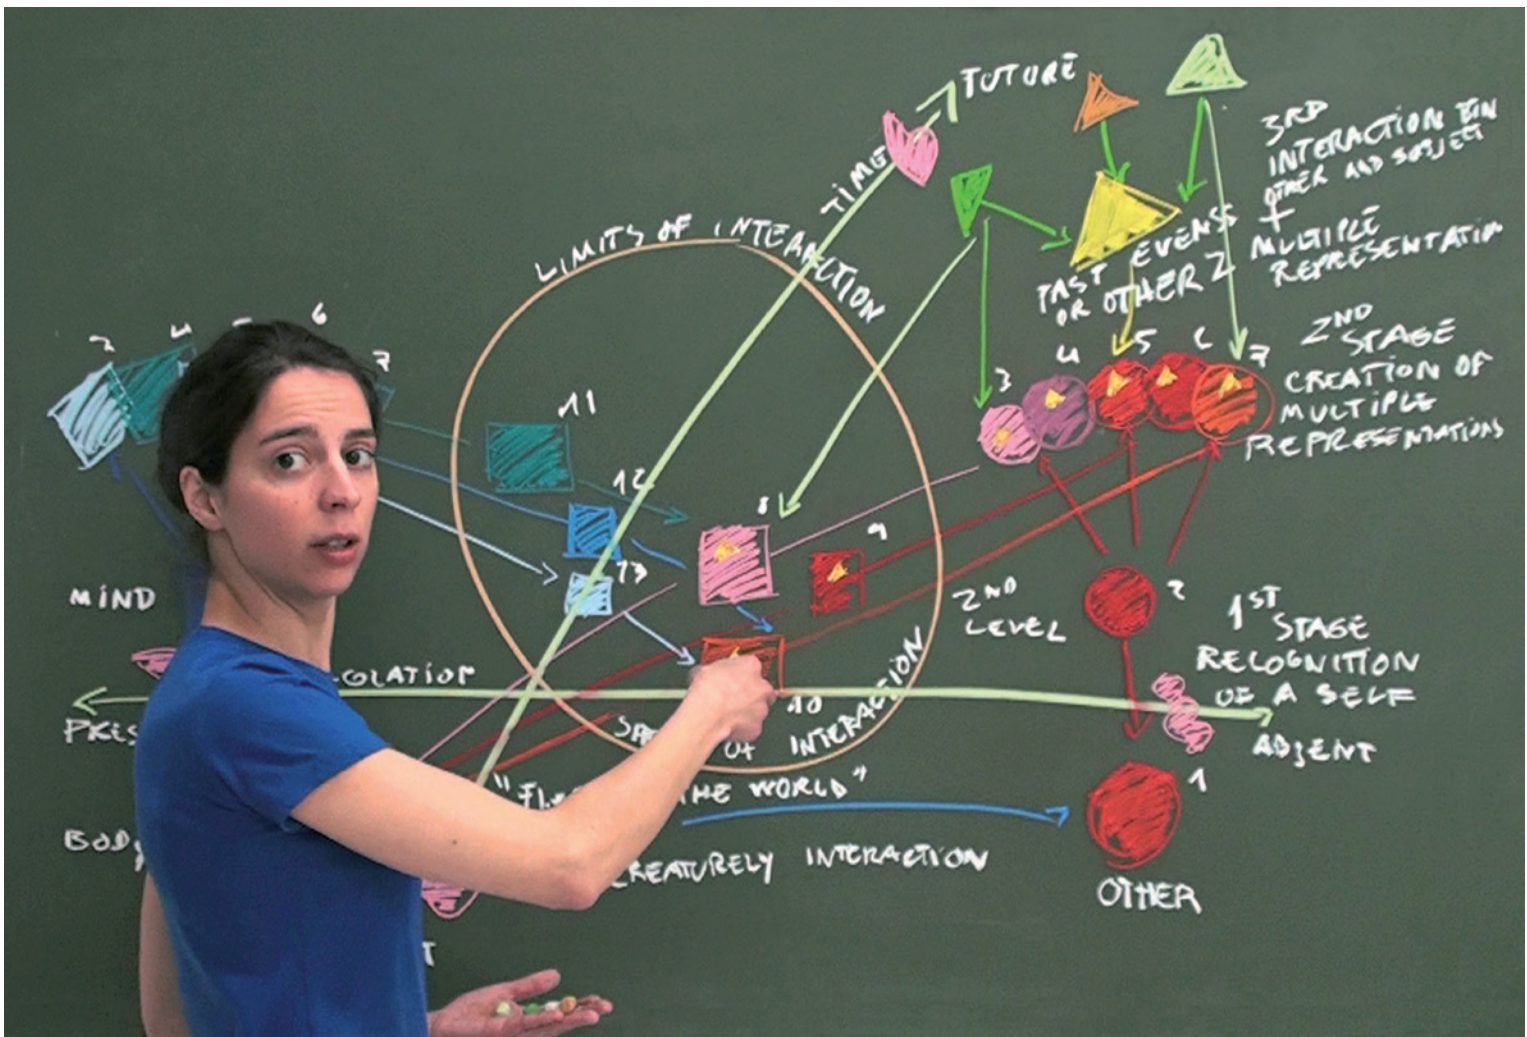 TUTURE
TIME
3RD
INTERACTION
OTHER AND SUBJECT
+
MULTIPLE
REPRESENTATION
LIMITS OF INTERACTION
PAST EVENSS
OR OTHER 2
2ND
STAGE
CREATION OF
MULTIPLE
REPRESENTATIONS
3
4
5
7
6
7
11
12
13
8
9
10
MIND
2ND
LEVEL
2
1ST
STAGE
RECOGNITION
OF A SELF
ADJENT
OF INTERACTION
THE WORLD"
CREATURELY INTERACTION
1
OTHER